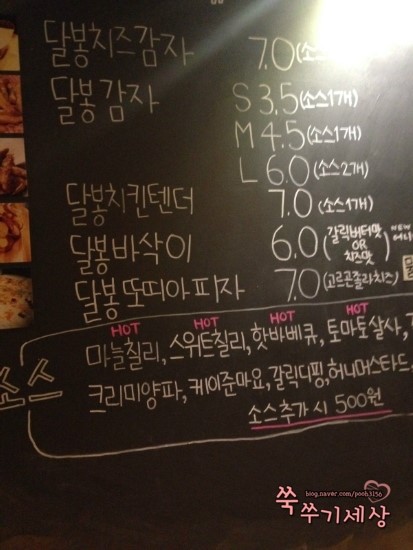 달봉치즈감자 7.0 (소스
달봉감자 S 3.5 (소스1개)
M 4.5 (소스1개)
L 6.0 (소스2개)
달봉치킨텐더 7.0 (소스1개)
달봉바삭이 6.0 (갈릭버터맛 OR 치즈맛) NEW
달봉또띠아피자 7.0 (고르곤졸라치즈)
HOT HOT HOT HOT
소스 마늘칠리, 스위트칠리, 핫바베큐, 토마토살사,
크리미양파, 케이준마요, 갈릭디핑, 허니머스타드,
소스추가시 500원
blog.naver.com/pooh3156
쑥쑤기세상